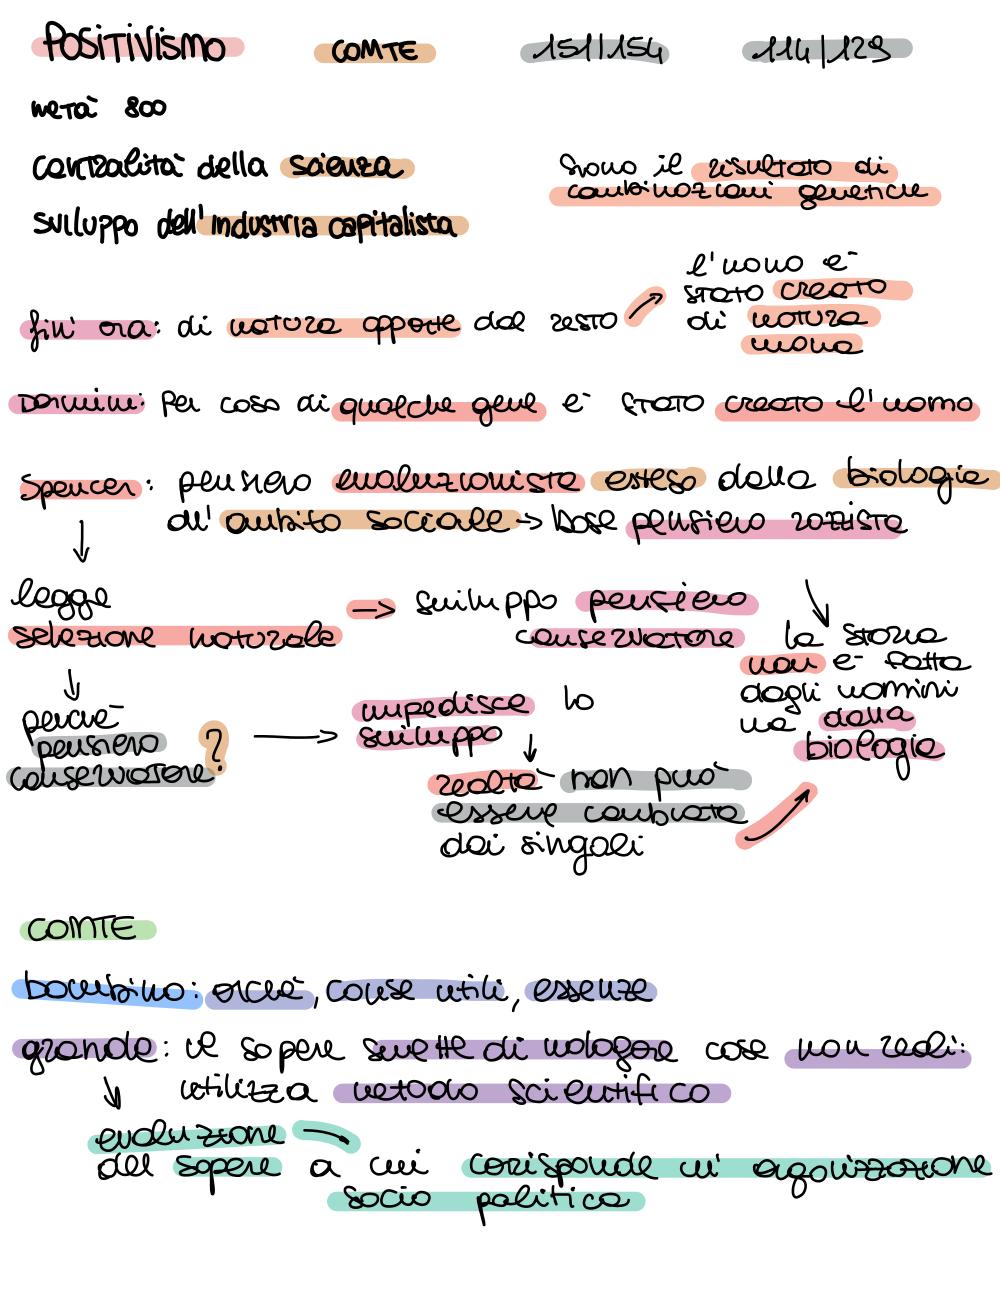 POSITIVISMO COMTE 151/154 114/129
metà 800
centralità della scienza
sviluppo dell'industria capitalista
siamo il risultato di
combinazioni genetiche
fin' ora: di natura opposte dal resto
l'uomo è
stato creato
di natura
umana
Darwin: per caso di qualche gene è stato creato l'uomo
Spencer: pensiero evoluzionista esteso dalla biologia
all' ambito sociale → base pensiero razzista
legge
selezione naturale → sviluppo pensiero
conservatore
la storia
non è fatta
dagli uomini
ma dalla
biologia
perchè
pensiero
conservatore ?
impedisce lo
sviluppo
realtà non può
essere cambiata
dai singoli
COMTE
bambino: cause utili, essenze
grande: il sapere smette di cose non reali:
utilizza metodo scientifico
evoluzione
del sapere a cui corisponde un'
socio politica